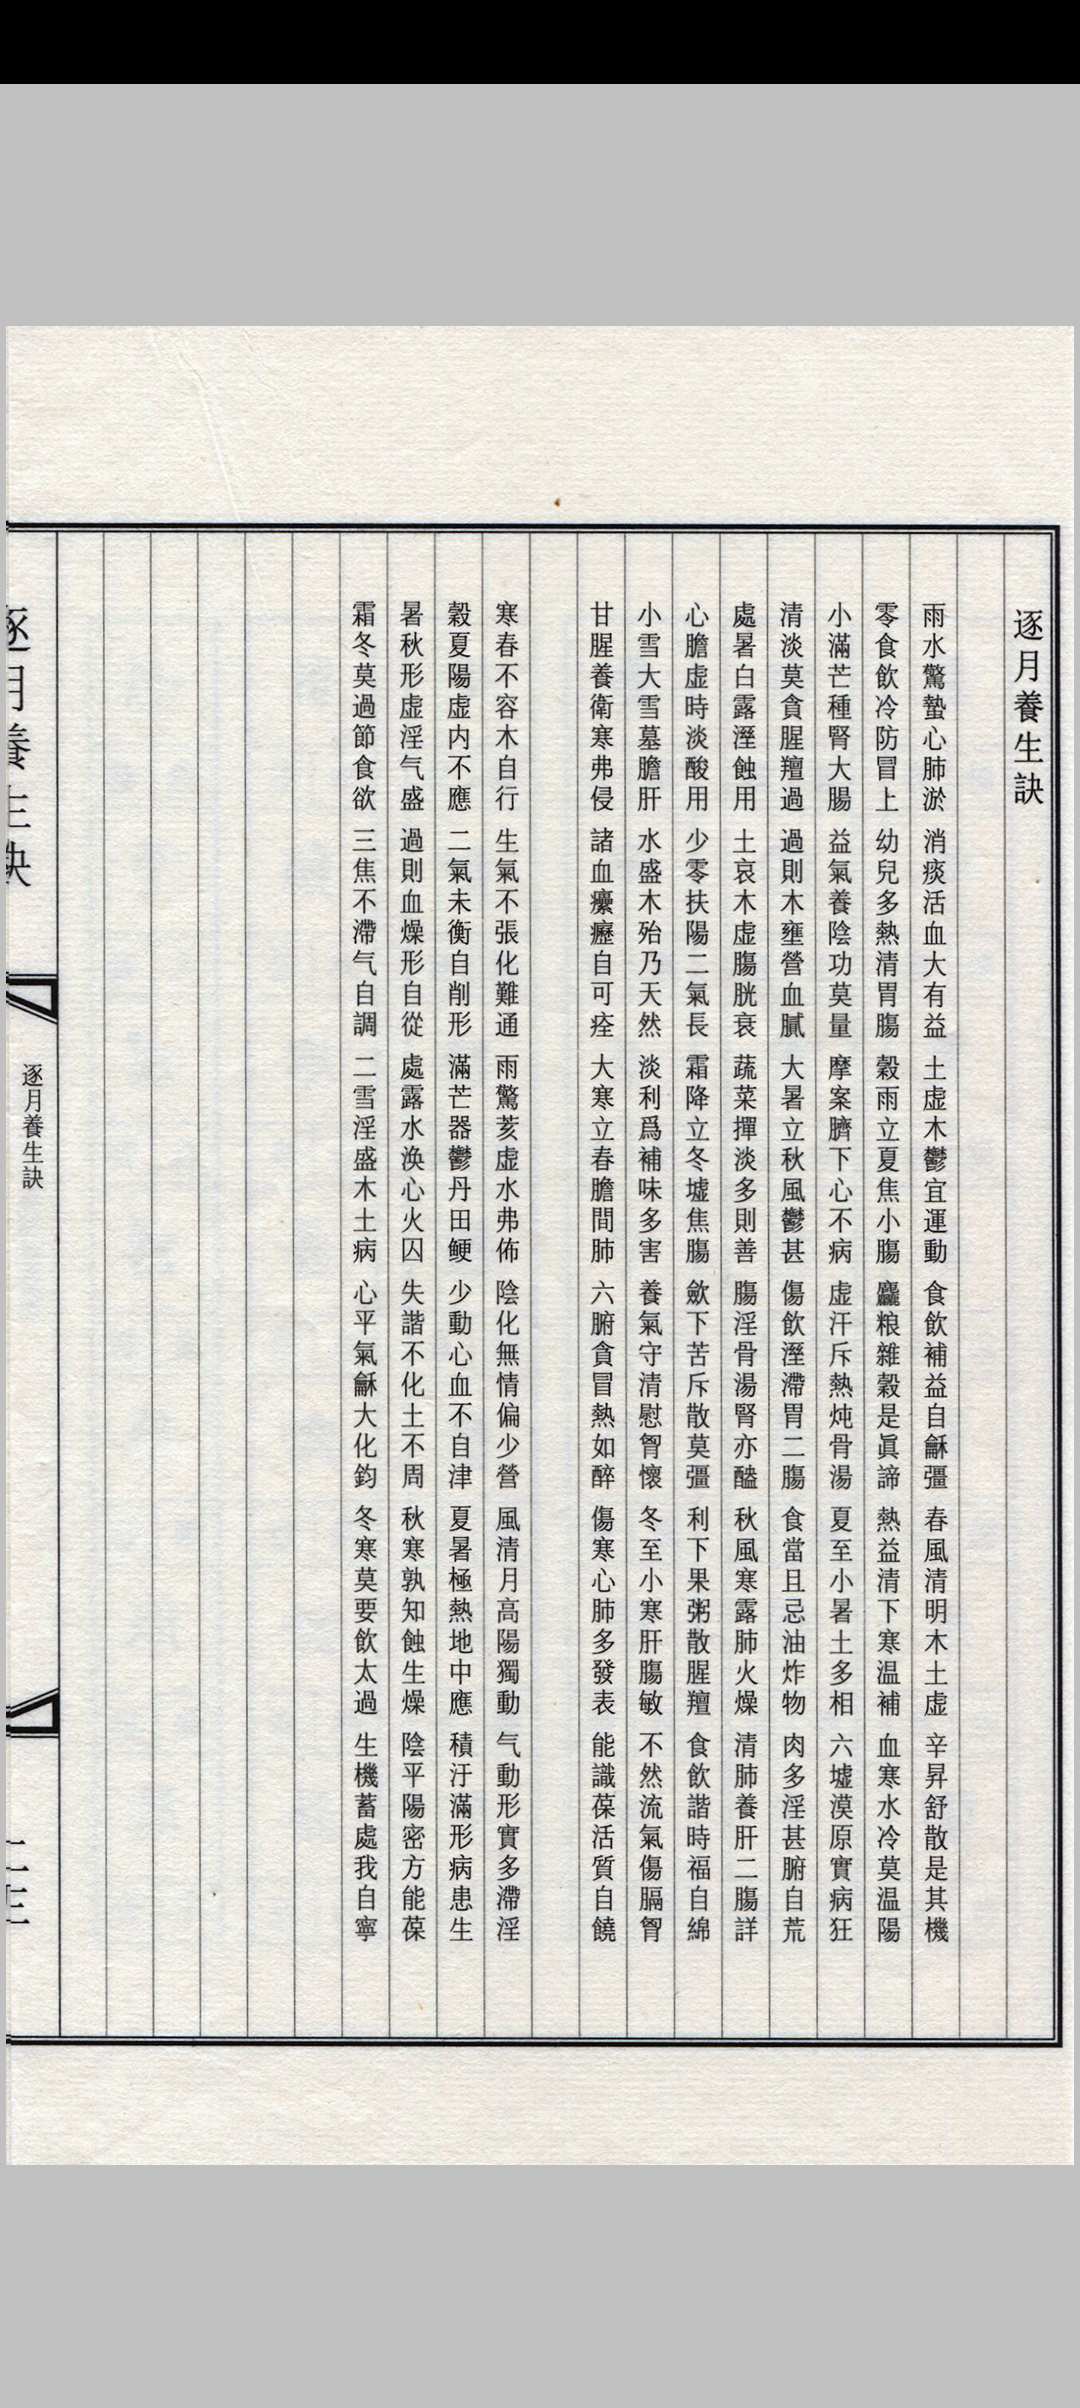 逐月養生訣
雨水驚蟄心肺淤 消痰活血大有益 土虛木鬱宜運動 食飲補益自龢彊 春風清明木土虛 辛昇舒散是其機
零食飲冷防冒上 幼兒多熱清胃腸 穀雨立夏焦小腸 麤粮雜穀是眞諦 熱益清下寒温補 血寒水冷莫温陽
小滿芒種腎大腸 益氣養陰功莫量 摩案臍下心不病 虛汗斥熱炖骨湯 夏至小暑土多相 六墟漠原實病狂
清淡莫貪腥羶過 過則木壅營血膩 大暑立秋風鬱甚 傷飲溼滯胃二腸 食當且忌油炸物 肉多淫甚腑自荒
處暑白露溼蝕用 土哀木虛腸胱衰 蔬菜撣淡多則善 腸淫骨湯腎亦醯 秋風寒露肺火燥 清肺養肝二腸詳
心膽虛時淡酸用 少零扶陽二氣長 霜降立冬墟焦腸 歛下苦斥散莫彊 利下果粥散腥羶 食飲諧時福自綿
小雪大雪墓膽肝 水盛木殆乃天然 淡利爲補味多害 養氣守清慰胷懷 冬至小寒肝腸敏 不然流氣傷膈胷
甘腥養衛寒弗侵 諸血癟癧自可痊 大寒立春膽間肺 六腑貪冒熱如醉 傷寒心肺多發表 能識葆活質自饒
寒春不容木自行 生氣不張化難通 雨驚荄虛水弗佈 陰化無情偏少營 風清月高陽獨動 气動形實多滯淫
穀夏陽虛内不應 二氣未衡自削形 滿芒器鬱丹田鲠 少動心血不自津 夏暑極熱地中應 積汙滿形病患生
暑秋形虛淫气盛 過則血燥形自從 處露水渙心火囚 失諧不化土不周 秋寒孰知蝕生燥 陰平陽密方能葆
霜冬莫過節食欲 三焦不滯气自調 二雪淫盛木土病 心平氣龢大化鈞 冬寒莫要飲太過 生機蓄處我自寧
逐月養生訣
逐月養生訣